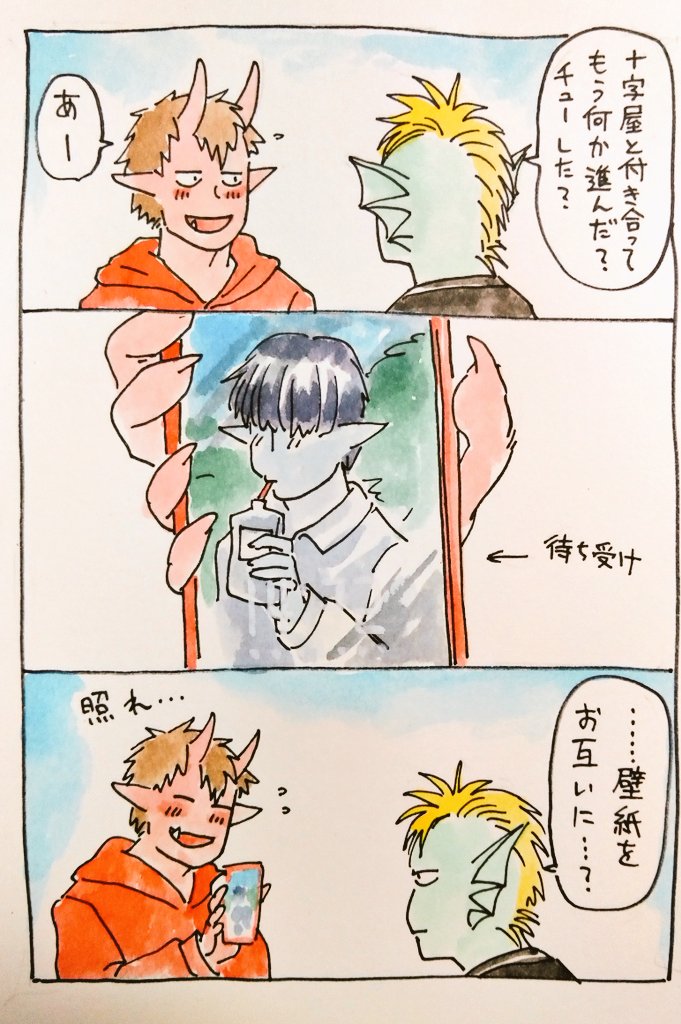 十字屋と付き合って
もう何か進んだ？
チューした？
あー
← 待ち受け
……壁紙を
お互いに…？
照れ…